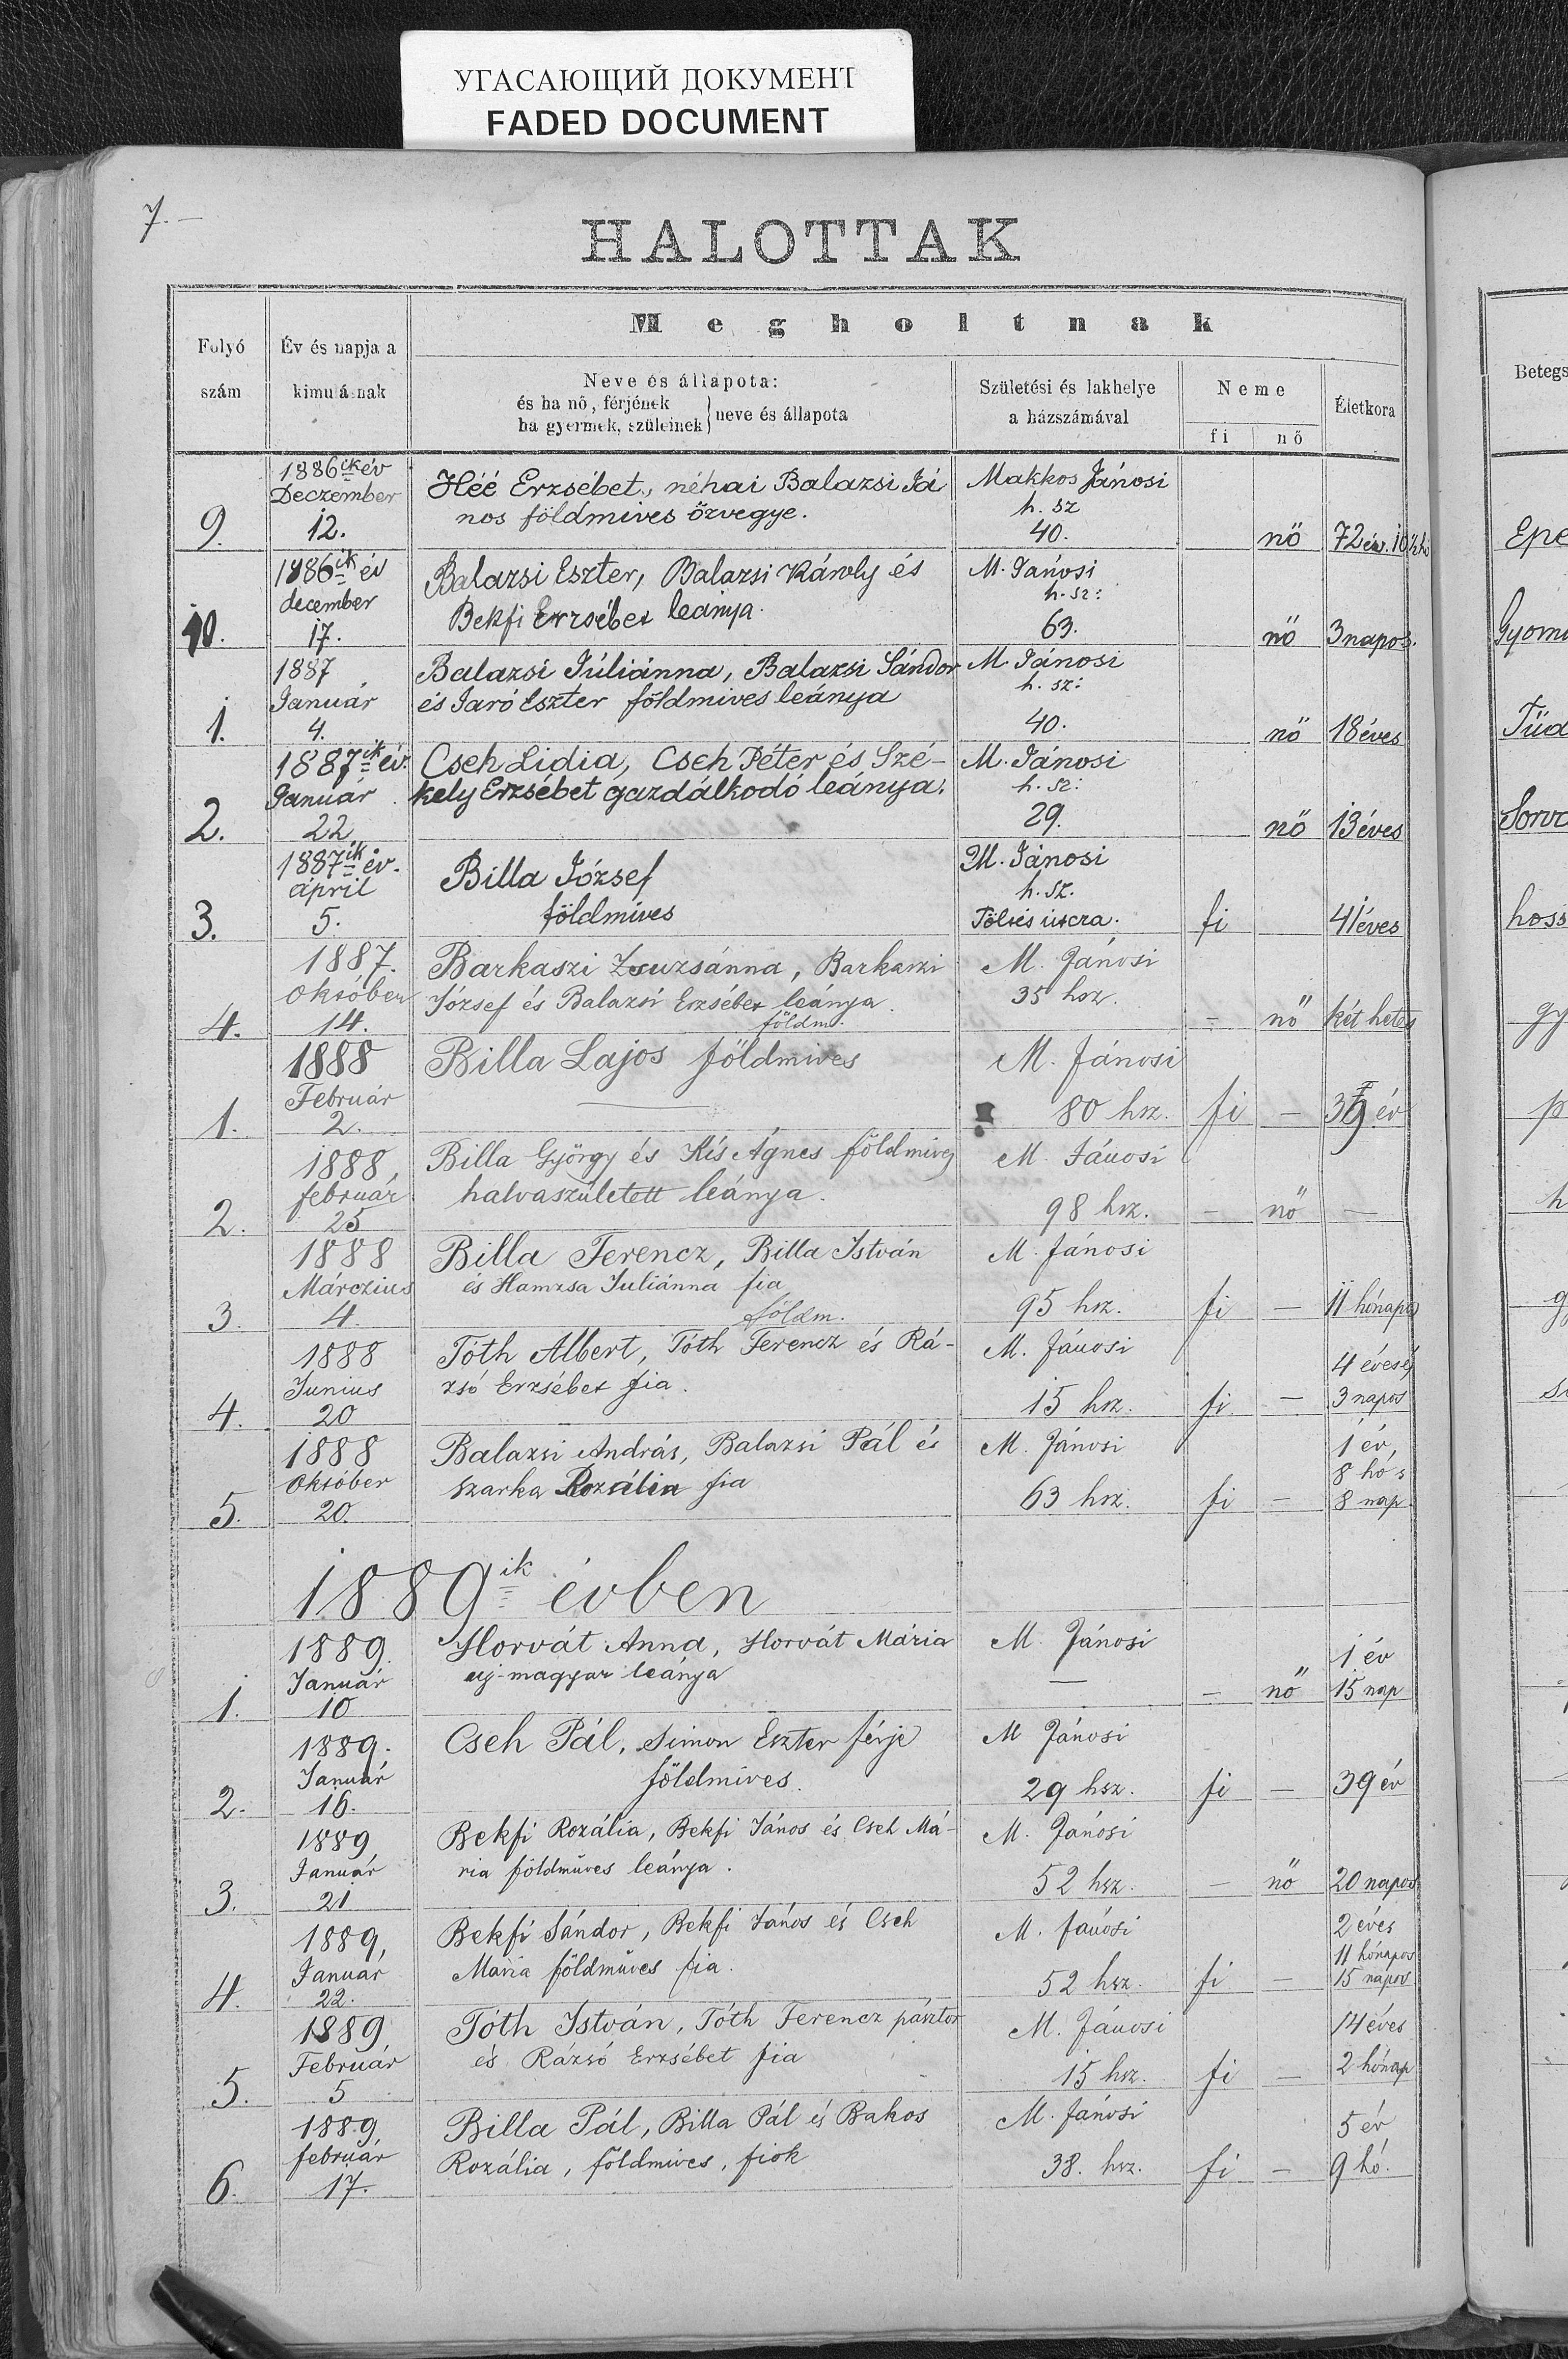 УГАСАЮЩИЙ ДОКУМЕНТ
FADED DOCUMENT
7.-
HALOTTAK
Megholtnak
Folyó szám
Év és napja a kimulásnak
Neve és állapota:
és ha nő, férjének
ha gyermek, szüleinek
neve és állapota
Születési és lakhelye
a házszámával
Neme
fi nő
Életkora
Betegs
1886ik év
Deczember
9. 12.
Héé Erzsébet, néhai Balazsi Já
nos földmives özvegye.
Makkos Jánosi
h. sz
40. nö 72 év.
Epe
1886ik év
december
10. 17.
Balazsi Eszter, Balazsi Károly és
Bekfi Erzsébet leánya.
M. Jánosi
h. sz:
63. nö 3 napos.
Gyom
1887
Január
1. 4.
Balazsi Júliánna, Balazsi Sándor
és Jaró Eszter földmives leánya
M. Jánosi
h. sz:
40. nö 18 éves
Tüd
1887ik év.
Január
2. 22
Cseh Lidia, Cseh Péter és Szé-
kely Erzsébet gazdálkodó leánya.
M. Jánosi
h. sz:
29. nö 13 éves
Sorv
1887ik év.
ápril
3. 5.
Billa József
földmives
M. Jánosi
h. sz.
Töltés utcza. fi 41 éves
hoss
1887.
Október
4. 14.
Barkaszi Zsuzsánna, Barkaszi
József és Balazsi Erzsébet leánya.
földm.
M. Jánosi
35 hsz. - nö két hetes
gy
1888
Február
1. 2.
Billa Lajos földmives
M. Jánosi
80 hsz. fi - év
p
1888,
február
2. 25
Billa György és Kis Ágnes földmives
halvaszületett leánya.
M. Jánosi
98 hsz. - nö -
h
1888
Márczius
3. 4.
Billa Ferencz, Billa István
és Hamzsa Juliánna fia
földm.
M. Jánosi
95 hsz. fi - 11 hónapos
g
1888
Junius
4. 20
Tóth Albert, Tóth Ferencz és Rá-
zsó Erzsébet fia.
M. Jánosi
15 hsz. fi -
4 éves és
3 napos
1888
Október
5. 20.
Balazsi András, Balazsi Pál és
Szarka Rozália fia
M. Jánosi
63 hsz. fi -
1 év,
8 hó s
8 nap
1889ik évben
1889.
Január
1. 10
Horvát Anna, Horvát Mária
uj-magyar leánya
M. Jánosi
- - nö
1 év
15 nap
1889.
Január
2. 16.
Cseh Pál, Simon Eszter férje
földmives.
M Jánosi
29 hsz. fi - 39 év
1889
Január
3. 21
Bekfi Rozália, Bekfi János és Cseh Má-
ria földmüves leánya.
M. Jánosi
52 hsz. - nö 20 napos
1889,
Január
4. 22.
Bekfi Sándor, Bekfi János és Cseh
Mária földmüves fia.
M. Jánosi
52 hsz. fi -
2 éves
11 hónapos
15 napos
1889,
Február
5. 5
Tóth István, Tóth Ferencz pásztor
és Rázsó Erzsébet fia
M. Jánosi
15 hsz. fi -
14 éves
2 hónap
1889,
február
6. 17.
Billa Pál, Billa Pál és Bakos
Rozália, földmives, fiok
M. Jánosi
38. hsz. fi -
5 év
9 hó.